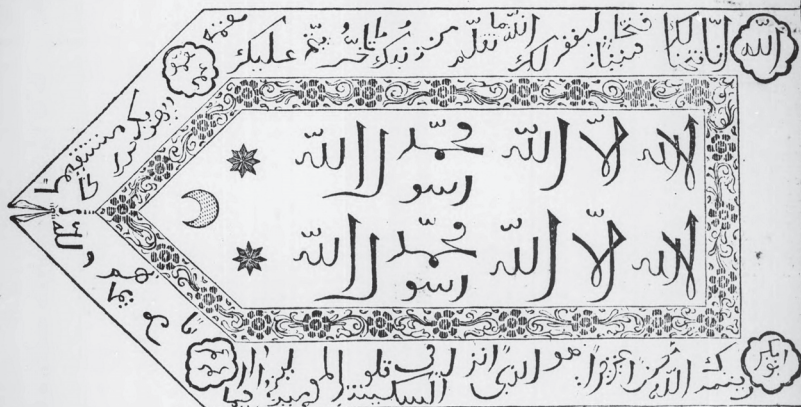 الله
انا فتحنا لك فتحا مبينا ليغفر لك الله ما تقدم من ذنبك وما تأخر ويتم نعمته عليك
ويهديك صراطا مستقيما
لا اله الا الله محمد رسول الله
لا اله الا الله محمد رسول الله
ابو بكر
وينصرك الله نصرا عزيزا هو الذي انزل السكينة في قلوب المؤمنين ليزدادوا ايمانا
مع ايمانهم ولله